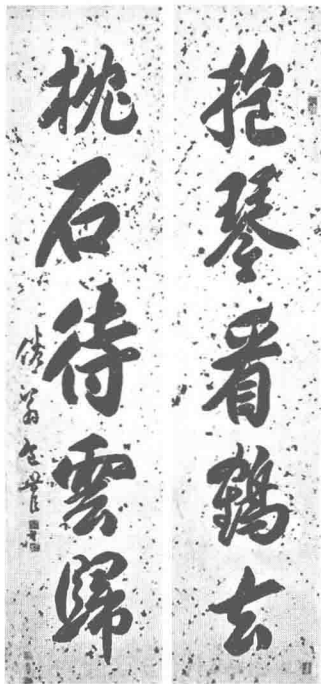 抱琴看鶴去
枕石待雲歸
倦翁包世臣